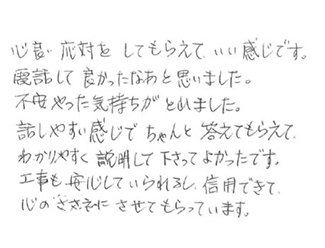 心良い応対をしてもらえて、いい感じです。
電話して良かったなあと思いました。
不安やった気持ちがとれました。
話しやすい感じでちゃんと答えてもらえて、
わかりやすく説明して下さってよかったです。
工事も安心していられるし、信用できて、
心のささえにさせてもらっています。